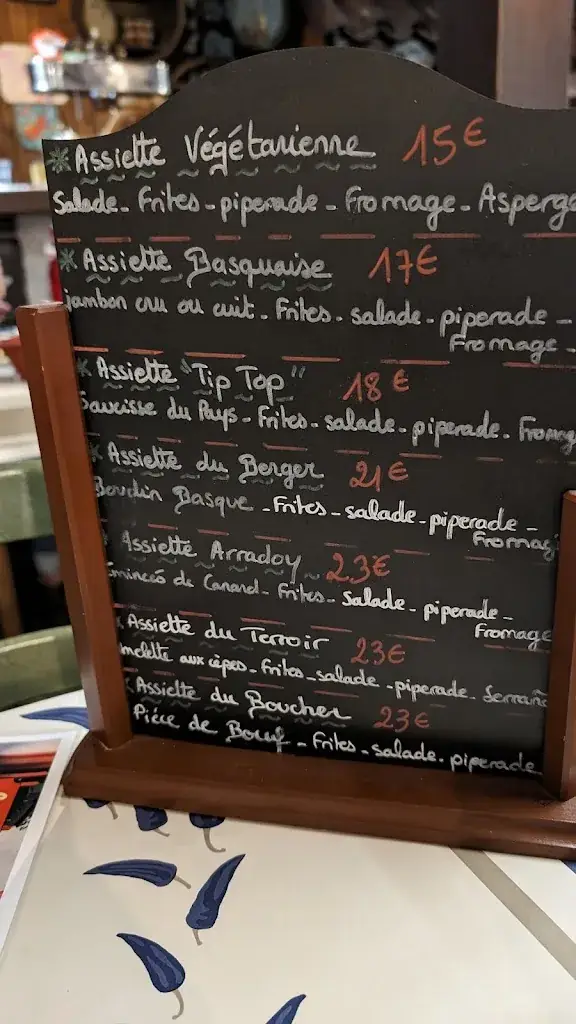 Assiette Végétarienne 15€
Salade - Frites - piperade - Fromage - Asperge
Assiette Basquaise 17€
jambon cru ou cuit - Frites - salade - piperade -
Fromage -
Assiette "Tip Top" 18€
Saucisse du Pays - Frites - salade - piperade - Fromag
Assiette du Berger 21€
Boudin Basque - Frites - salade - piperade -
Fromag
Assiette Arradoy 23€
Emincés de Canard - Frites - salade - piperade -
Fromage
Assiette du Terroir 23€
melette aux cèpes - Frites - salade - piperade - Serrano
Assiette du Boucher 23€
Pièce de Boeuf - Frites - salade - piperade